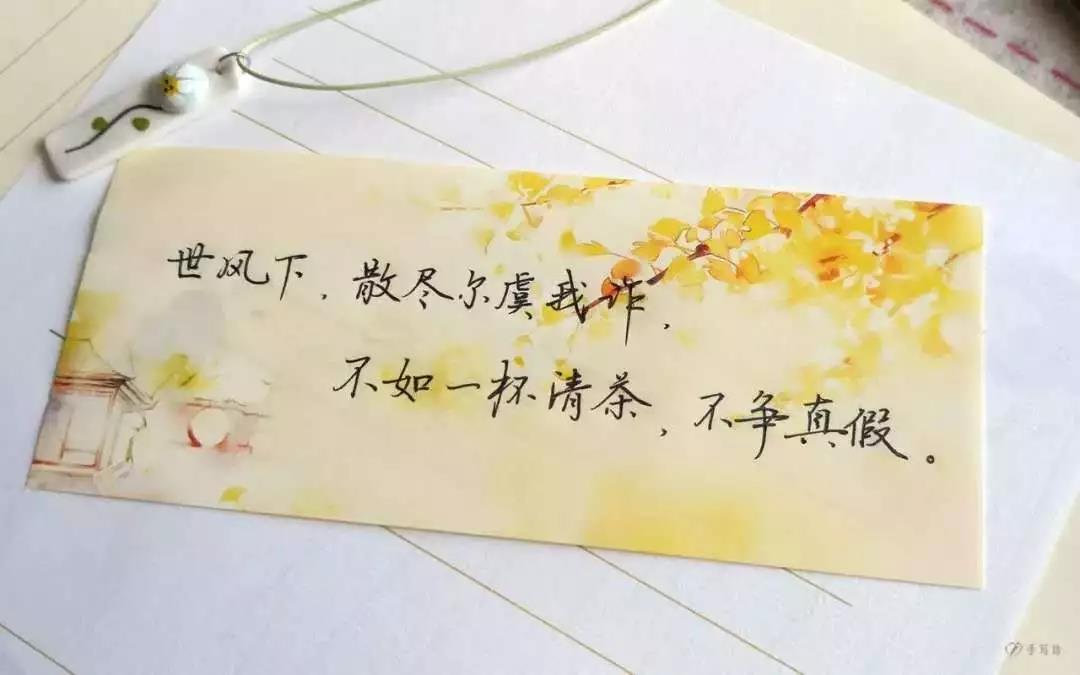 世风下，散尽尔虞我诈，
不如一杯清茶，不争真假。